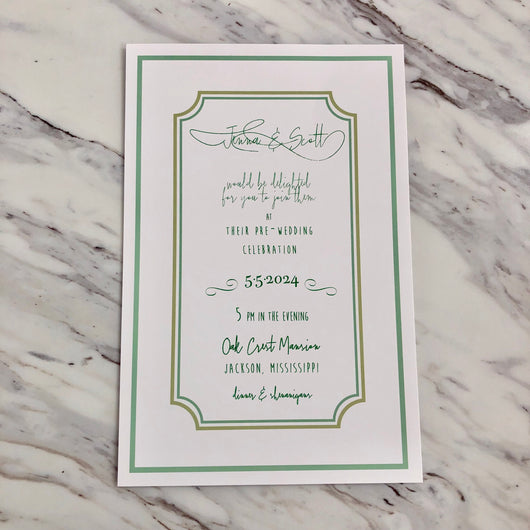 Jenna & Scott
would be delighted
for you to join them
AT
THEIR PRE-WEDDING
CELEBRATION
5·5·2024
5 PM IN THE EVENING
Oak Crest Mansion
JACKSON, MISSISSIPPI
dinner & shenanigans